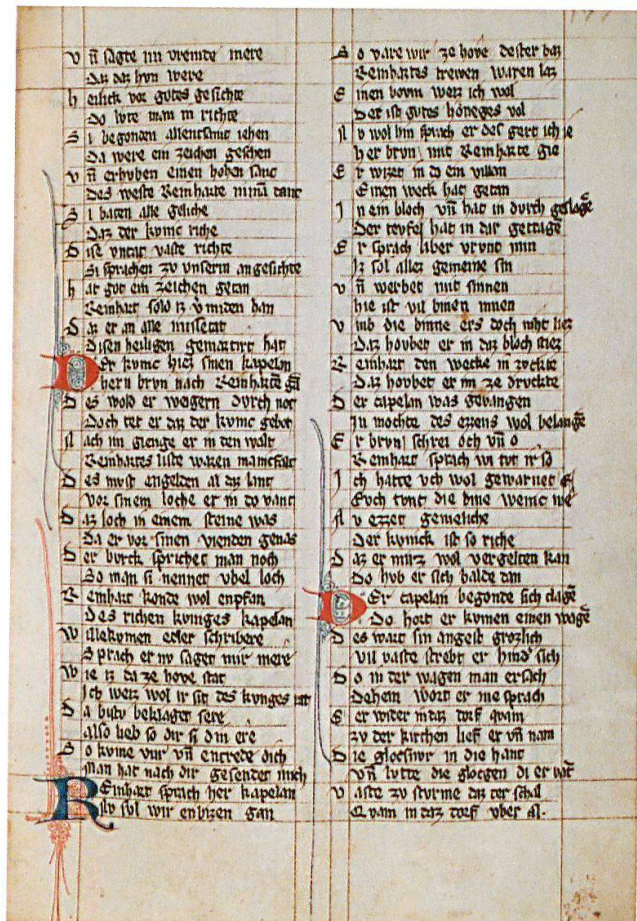 vñ sagte im vremde mere
Daz daz hvn were
heilick vor gotes gesichte
Do lvte man in richte
Si begonden allentsamt iehen
Da were ein zeichen geschen
vñ erhvben einen hohen sanc
Des weste Reinharte
Si baten alle geliche
Daz der kvnic riche
Dise vntat vaste richte
Si sprachen zv vnserm angesichte
hat got ein zeichen getan
Reinhart solde iz v̂miden han
Daz er an alle missetat
Disen heiligen gemartirt hat
Der kvnic hiez sinen kapelan
hern brvn nach Reinharte gã
Des wold er weigern dvrch not
Doch tet er daz der kvnic gebot
Nach im gienge er in den walt
Reinhartes liste waren manicfalt
Des mvst engelden al daz lant
vor sinem loche er in do vant
Daz loch in einem steine was
Da er vor sinen vienden genas
Der bvrck sprichet man noch
So man si nennet vbel loch
Reinhart konde wol enpfan
Des richen kvniges kapelan
Willekvmen edler schribere
Sprach er nv saget mir mere
Wie iz da ze hove stat
Ich weiz wol ir sit des kvnges rat
Da bistv beklaget sere
Also lieb so dir si din ere
So kvme vur vñ entrede dich
Man hat nach dir gesendet mich
Reinhart sprach her kapelan
Nv svl wir enbizen gan
So vare wir ze hove dester baz
Reinhartes trewen waren laz
Einen bovm weiz ich wol
Der ist gvtes honeges vol
Nv wol hin sprach er des gert ich ie
her brvn mit Reinharte gie
Er wizet in do ein villan
Einen weck hat getan
In ein bloch vñ hat in dvrch geslagẽ
Der tevfel hat in dar getragẽ
Er sprach liber vrvnt min
Iz sol allez gemeine sin
vñ werbet mit sinnen
hie ist vil binen innen
vmb die binne ers doch niht liez
Daz hovbet er in daz bloch stiez
Reinhart den wecke in zvckte
Daz hovbet er im ze drvckte
Der capelan was gevangen
In mochte des ezzens wol belangẽ
Er brvnt schrei och vñ o
Reinhart sprach wi tvt ir so
Ich hatte vch wol gewarnet
Evch tvnt die bine weinic we
Nv ezzet gemeliche
Der kvnick ist so riche
Daz er mirz wol vergelten kan
Do hvb er sich balde dan
Der capelan begonde sich clagẽ
Do hort er kvmen einen wagẽ
Des wart sin angest grozlich
vil vaste strebt er hind̾ sich
Do in der wagen man ersach
Dehein wort er nie sprach
Er wider in daz dorf quam
zv der kirchen lief er vñ nam
Die glocsnvr in die hant
vñ lvtte die glocgen di er
vaste zv stvrme daz der schal
Qvam in daz dorf vber al.